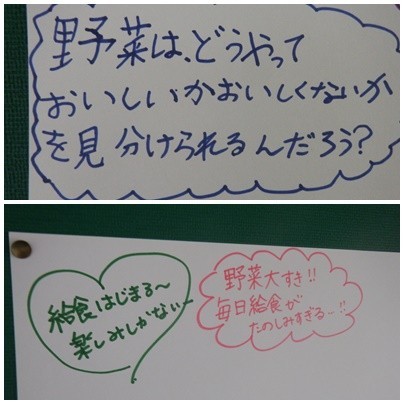 野菜は、どうやって
おいしいかおいしくないか
を見分けられるんだろう?
給食はじまる〜
楽しみしかないー
野菜大すき!!
毎日給食が
たのしみすぎるー!!